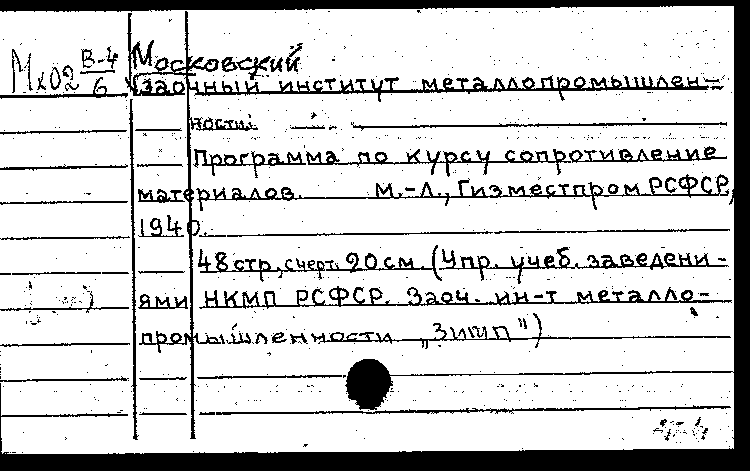 Мх02 В-4/6 Московский
заочный институт металлопромышлен-
ности.
Программа по курсу сопротивление
материалов. М.-Л., Гизместпром РСФСР,
1940.
48 стр, с черт. 20 см. (Упр. учеб. заведени-
ями НКМП РСФСР. Заоч. ин-т металло-
промышленности „Зимп")